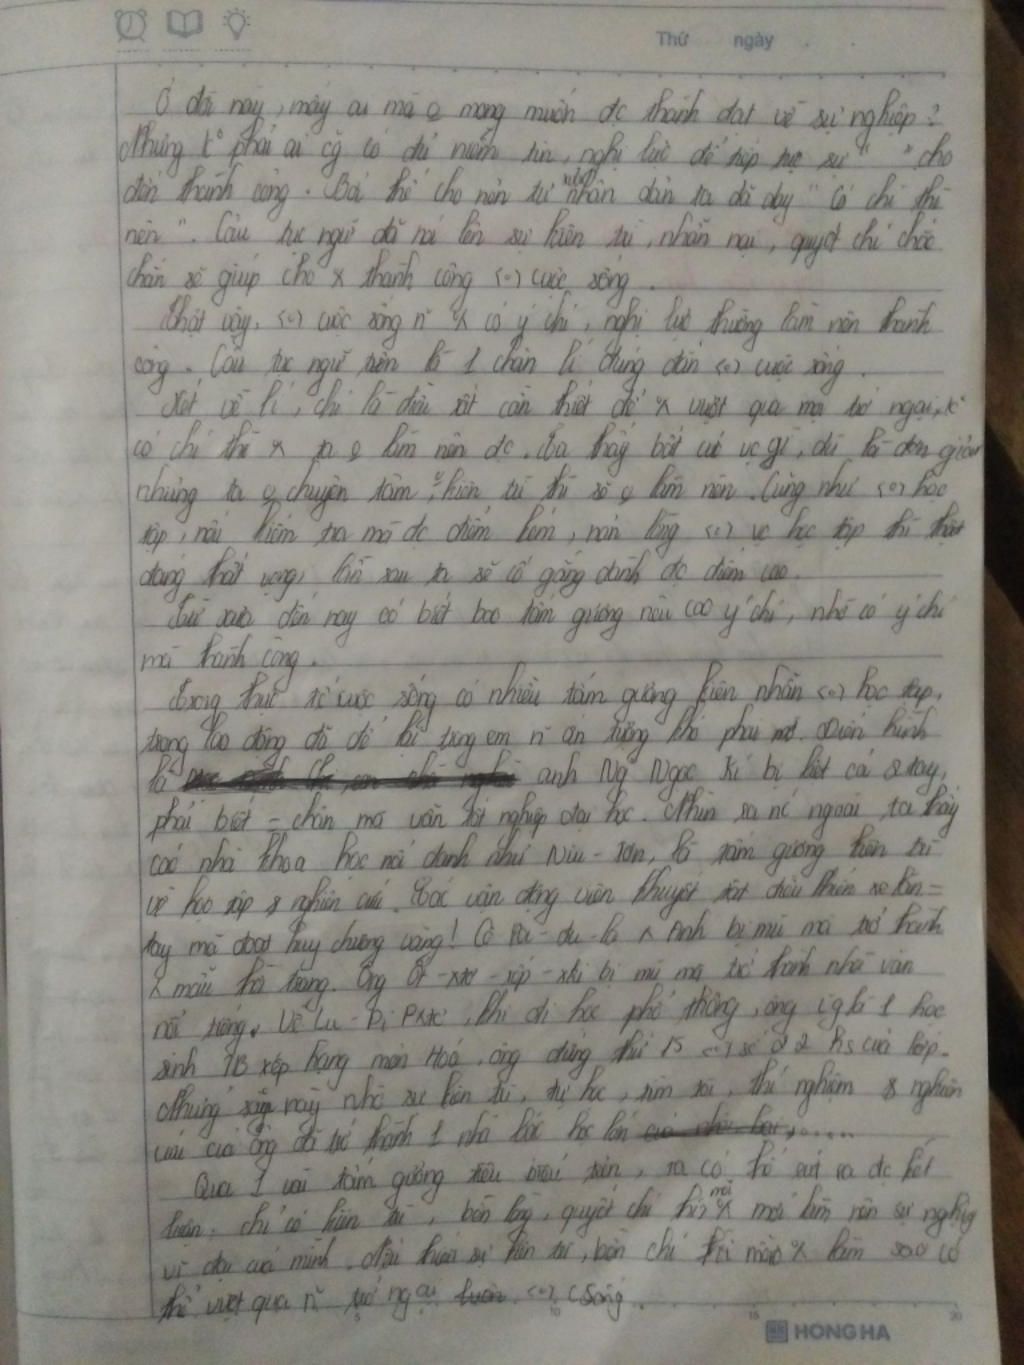 Thứ ngày
Ở đời này, mấy ai mà o mong muốn đc thành đạt về sự nghiệp?
Nhưng k° phải ai cg có đủ niềm tin, nghị lực để tiếp tục sự " " cho
đến thành công. Bởi thế cho nên từ xưa nhân dân ta đã dạy "Có chí thì
nên". Câu tục ngữ đã nói lên sự kiên trì, nhẫn nại, quyết chí chắc
chắn sẽ giúp cho x thành công (..) cuộc sống.
Thật vậy, (..) cuộc sống n~ x có ý chí, nghị lực thường làm nên thành
công. Câu tục ngữ trên là 1 chân lí đúng đắn (..) cuộc sống.
Xét về lí, chí là điều rất cần thiết để x vượt qua mọi trở ngại, k°
có chí thì x ta o làm nên đc. Ta thấy bất cứ vc gì, dù là đơn giản
nhưng ta o chuyên tâm, kiên trì thì sẽ o làm nên. Cũng như (..) học
tập, nếu kiểm tra mà đc điểm kém, nản lòng (..) vc học tập thì thật
đáng thất vọng, lần sau ta sẽ cố gắng dành đc điểm cao.
Từ xưa đến nay có biết bao tấm gương nêu cao ý chí, nhờ có ý chí
mà thành công.
Trong thực tế cuộc sống có nhiều tấm gương kiên nhẫn (..) học tập,
trong lao động đã để lại trong em n~ ấn tượng khó phai. Điển hình
là anh Ng Ngọc Kí bị liệt cả 2 tay,
phải biết = chân mà vẫn tốt nghiệp đại học. Nhìn ra nc ngoài ta thấy
các nhà khoa học nổi danh như Niu-tơn, là tấm gương kiên trì
về học tập & nghiên cứu. Các vận động viên khuyết tật điều khiển xe lăn =
tay mà đoạt huy chương vàng! Cô Pa-du-la x Anh bị mù mà trở thành
x mẫu thời trang. Ông Ốt-xtơ-rốp-xki bị mù mà trở thành nhà văn
nổi tiếng. Về Lu-i Paxtơ, khi đi học phổ thông, ông cg là 1 học
sinh TB xếp hạng môn Hoá, ông đứng thứ 15 (..) số 22 hs của lớp.
Nhưng sau này nhờ sự kiên trì, tự học, tìm tòi, thí nghiệm & nghiên
cứu của ông đã trở thành 1 nhà bác học lớn......
Qua 1 vài tấm gương tiêu biểu trên, ta có thể rút ra đc kết
luận: chỉ có kiên trì, bền lòng, quyết chí thì mỗi x mới làm nên sự nghiệp
vĩ đại của mình. Nếu thiếu sự kiên trì, bền chí thì mỗi x làm sao có
thể vượt qua n~ trở ngại (..) c sống.
HONG HA